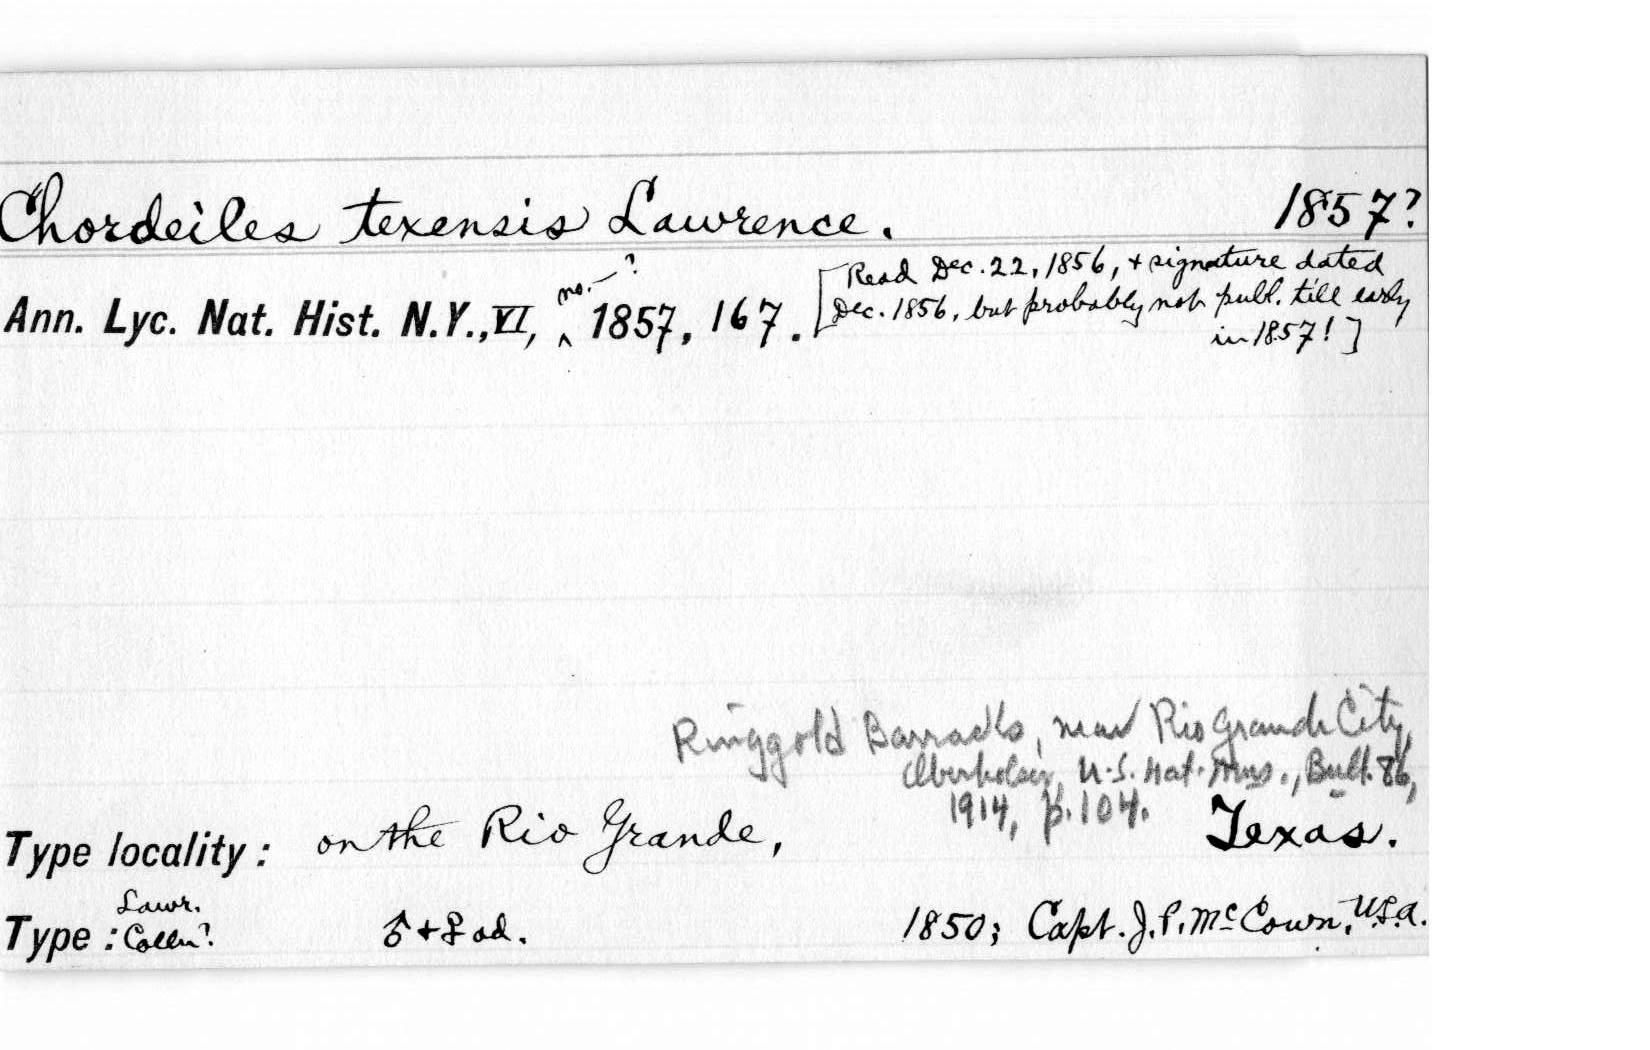 Chordeiles texensis Lawrence. 1857?
Ann. Lyc. Nat. Hist. N.Y., VI, no. —? 1857, 167. [Read Dec. 22, 1856, + signature dated
Dec. 1856, but probably not publ. till early
in 1857!]
Ringgold Barracks, near Rio Grande City,
Oberholser, U.S. Nat. Mus., Bull. 86,
1914, p. 104.
Type locality: on the Rio Grande, Texas.
Type: Lawr. Colln? ♂ + ♀ ad. 1850; Capt. J. P. McCown, U.S.A.